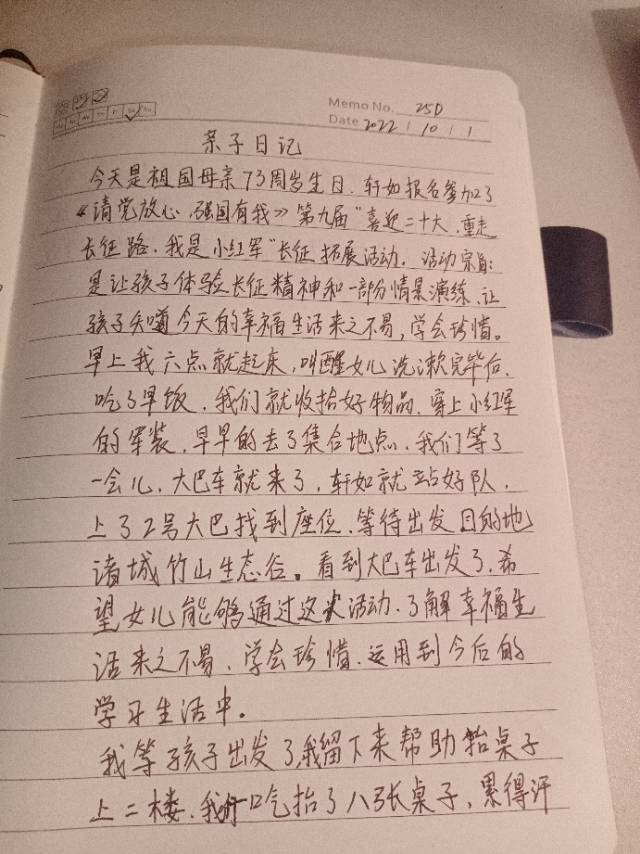 Memo No. 25D
Date 2022 / 10 / 1
亲子日记
今天是祖国母亲73周岁生日.轩如报名参加了
《请党放心,强国有我》第九届“喜迎二十大,重走
长征路.我是小红军”长征拓展活动.活动宗旨:
是让孩子体验长征精神和一部分情景演练,让
孩子知道今天的幸福生活来之不易,学会珍惜。
早上我六点就起床,叫醒女儿洗漱完毕后.
吃了早饭.我们就收拾好物品.穿上小红军
的军装,早早的去了集合地点.我们等了
一会儿.大巴车就来了,轩如就站好队.
上了2号大巴找到座位.等待出发目的地
诸城竹山生态谷。看到大巴车出发了.希
望女儿能够通过这次活动.了解幸福生
活来之不易、学会珍惜.运用到今后的
学习生活中。
我等孩子出发了,我留下来帮助抬桌子
上二楼.我一口气抬了八张桌子,累得汗